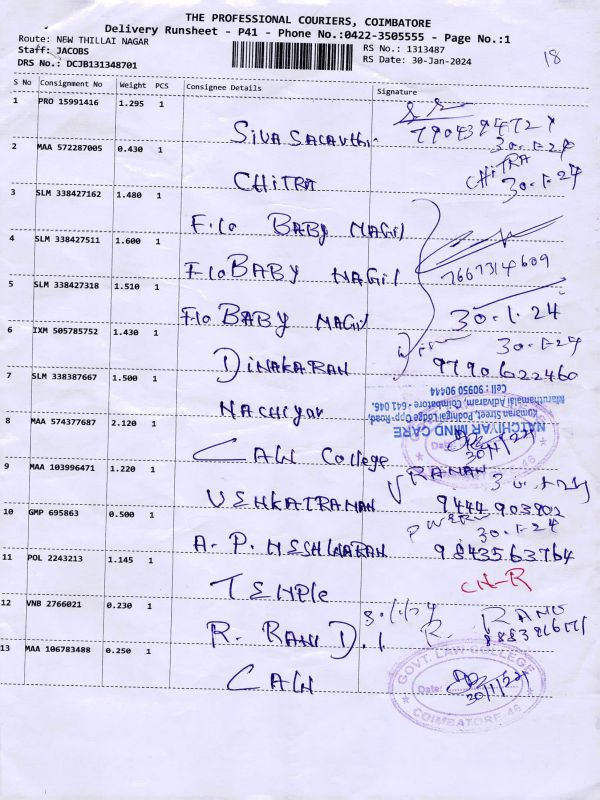 THE PROFESSIONAL COURIERS, COIMBATORE
Delivery Runsheet - P41 - Phone No.:0422-3505555 - Page No.:1
Route: NEW THILLAI NAGAR
RS No.: 1313487
Staff: JACOBS
RS Date: 30-Jan-2024
DRS No.: DCJB131348701
18
S No Consignment No Weight PCS Consignee Details Signature
1 PRO 15991416 1.295 1
30.1.24
2 MAA 572287005 0.430 1
CHITRA CHITRA
30.1.24
3 SLM 338427162 1.480 1
F.lo BABY MAGIL
4 SLM 338427511 1.600 1
F.lo BABY MAGIL 7667314609
5 SLM 338427318 1.510 1
F.lo BABY MAGIL 30.1.24
6 IXM 505785752 1.430 1
30.1.24
DINAKARAN 9790622460
7 SLM 338387667 1.500 1
NACHIYAR
NATCHIYAR MIND CARE
Kumaran Street, Podhigai Lodge-Opp-Road,
Maruthamalai Adivaram, Coimbatore - 641 046.
Cell : 90950 90444
8 MAA 574377687 2.120 1
LAW College 30/1/24
9 MAA 103996471 1.220 1
VENKATRAMAN
10 GMP 695863 0.500 1
30.1.24
9843563764
11 POL 2243213 1.145 1
TEMPLE CN-R
12 VNB 2766021 0.230 1
R. RANI D.
13 MAA 106783488 0.250 1
LAW
GOVT. LAW COLLEGE
Date: 30/1/24
COIMBATORE 46